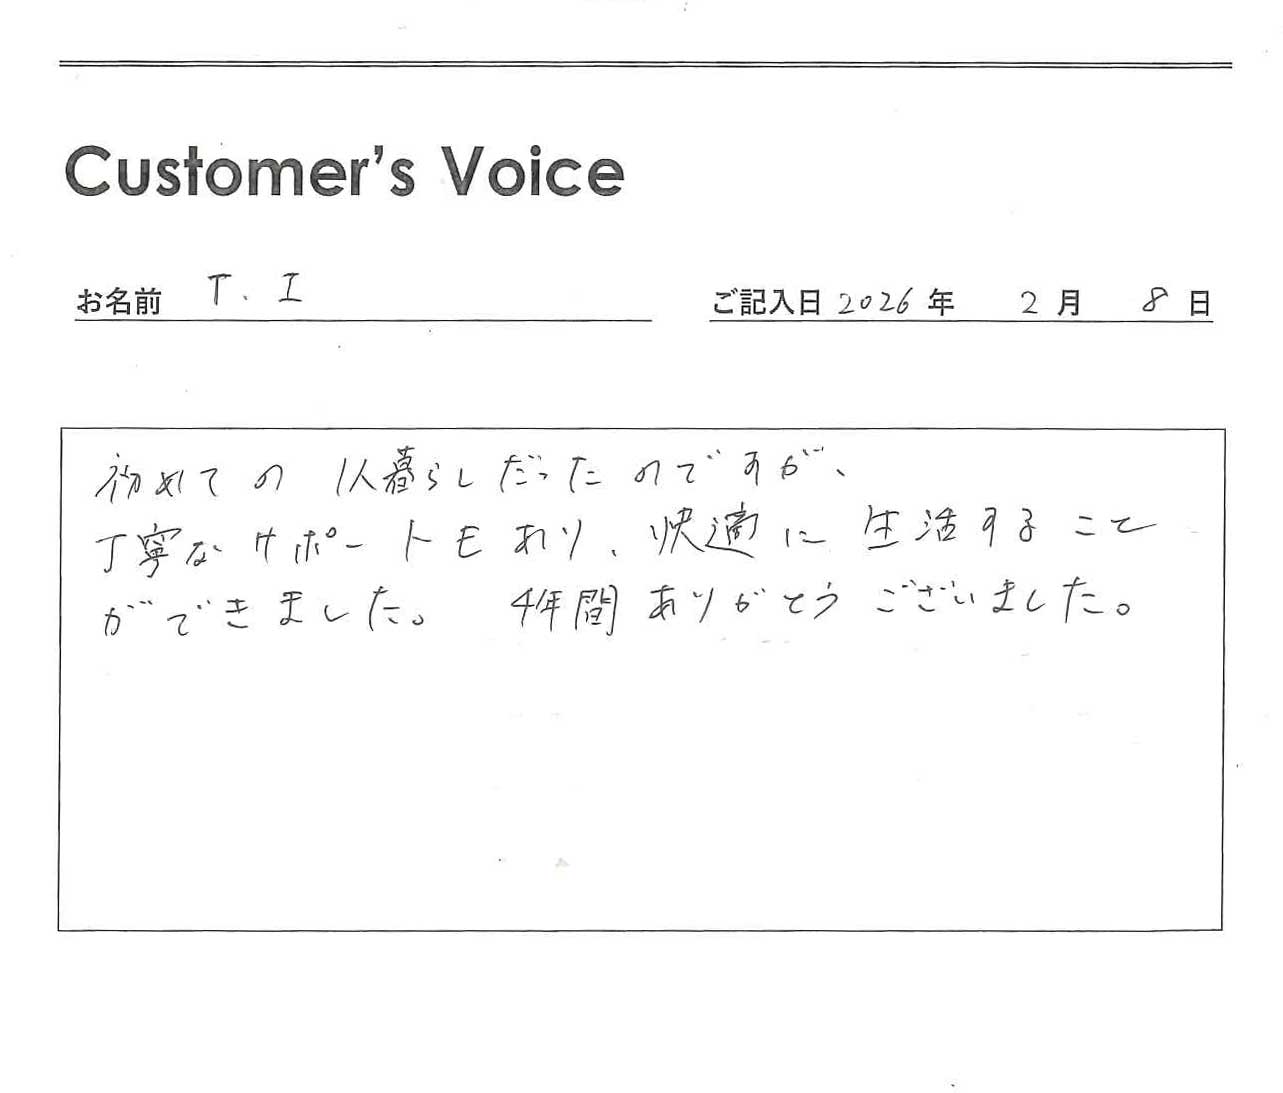 Customer's Voice
お名前 T. I
ご記入日 2026 年 2 月 8 日
初めての 1人暮らしだったのですが、
丁寧なサポートもあり、快適に生活すること
ができました。 4年間ありがとうございました。